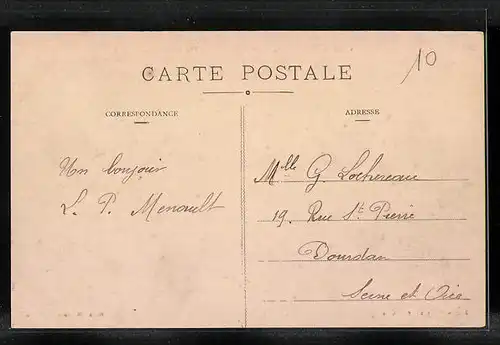 10
CARTE POSTALE
CORRESPONDANCE
ADRESSE
Un bonjour
L. P. Menault
Mlle G. Lochereau
19. Rue St Pierre
Dourdan
Seine et Oise